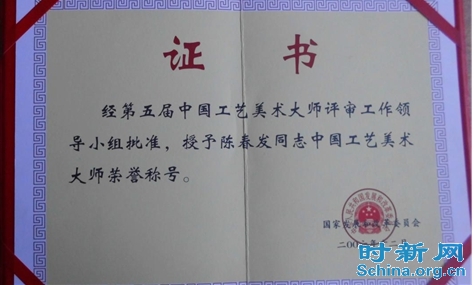 证书
经第五届中国工艺美术大师评审工作领
导小组批准，授予陈春发同志中国工艺美术
大师荣誉称号。
国家发展和改革委员会
时新网
Schina.org.cn